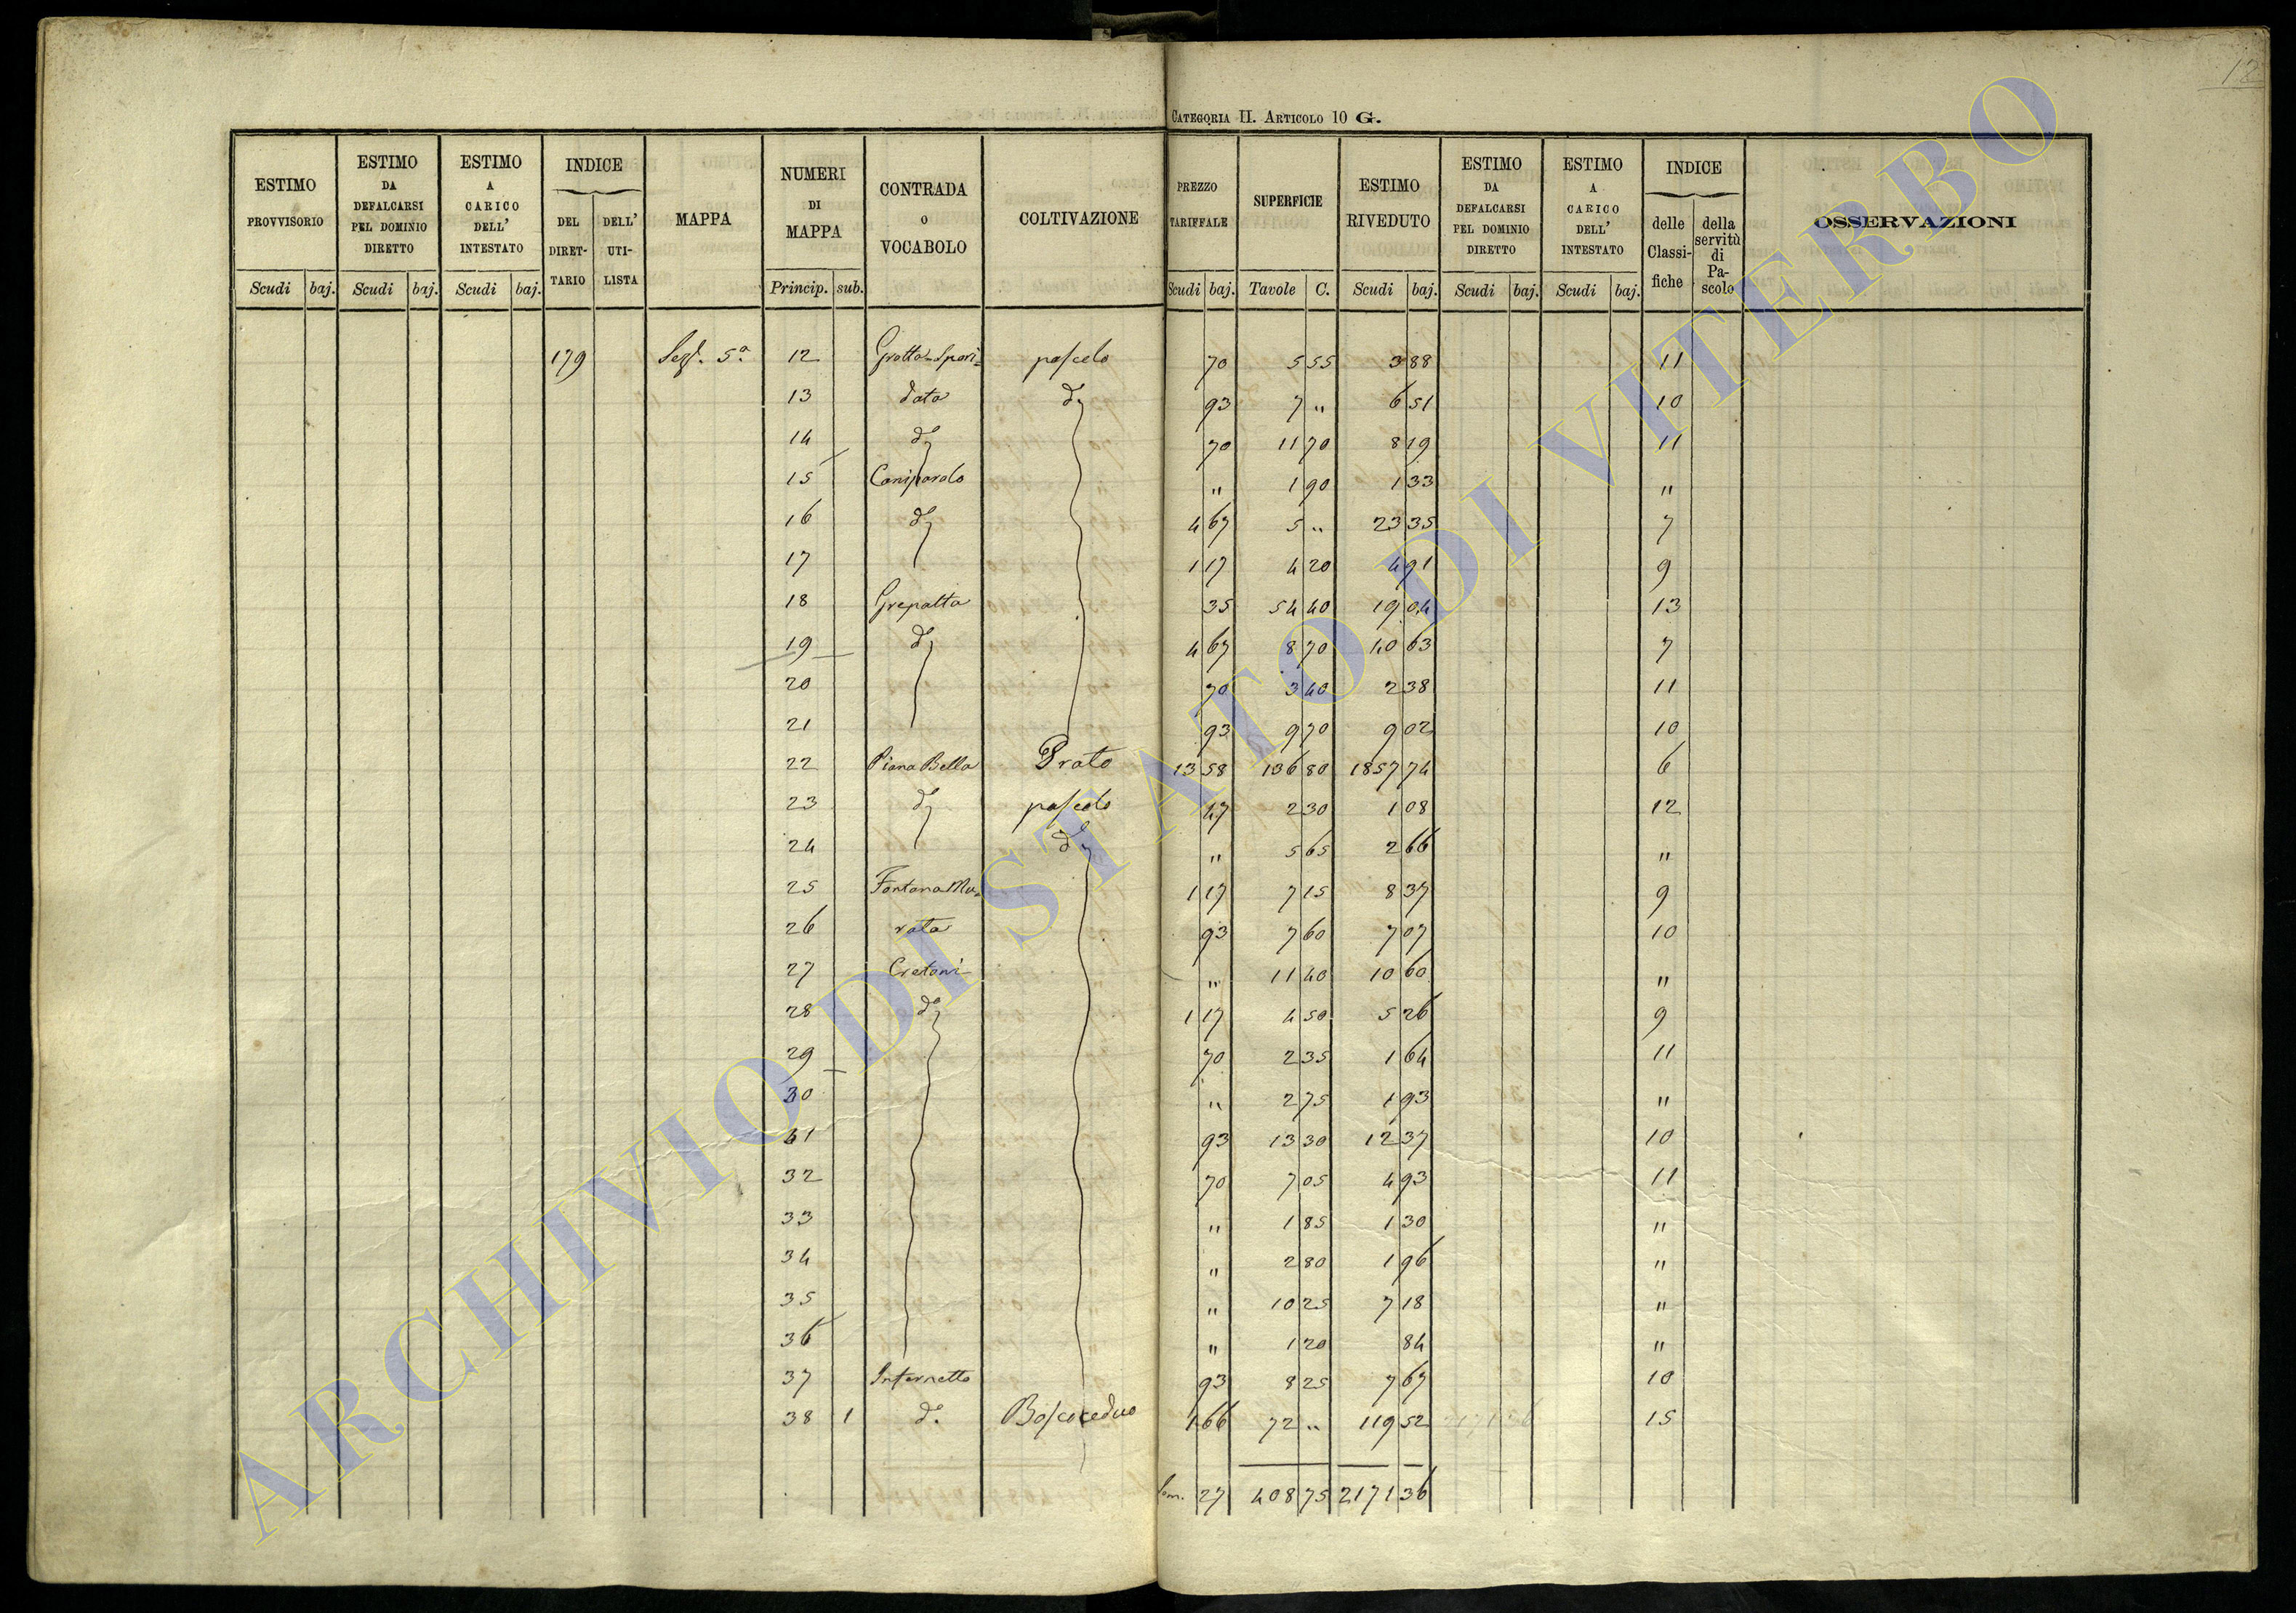 12
CATEGORIA II. ARTICOLO 10 G.
ESTIMO PROVVISORIO | ESTIMO DA DEFALCARSI PEL DOMINIO DIRETTO | ESTIMO A CARICO DELL' INTESTATO | INDICE DEL DIRET-TARIO | DELL' UTI-LISTA | MAPPA | NUMERI DI MAPPA | CONTRADA O VOCABOLO | COLTIVAZIONE | PREZZO TARIFFALE | SUPERFICIE | ESTIMO RIVEDUTO | ESTIMO DA DEFALCARSI PEL DOMINIO DIRETTO | ESTIMO A CARICO DELL' INTESTATO | INDICE delle Classi-fiche | della servitù di Pa-scolo | OSSERVAZIONI
Scudi | baj. | Scudi | baj. | Scudi | baj. | Princip. | sub. | Scudi | baj. | Tavole | C. | Scudi | baj. | Scudi | baj. | Scudi | baj.
179 | Sez. 5a | 12 | Grotta Spari= | pascolo | 70 | 5 55 | 3 88 | 11
13 | data | do | 93 | 7 " | 6 51 | 10
14 | do | 70 | 11 70 | 8 19 | 11
15 | Caniparolo | " | 1 90 | 1 33 | "
16 | do | 4 67 | 5 " | 23 35 | 7
17 | 1 17 | 4 20 | 4 91 | 9
18 | Grepatta | 35 | 54 40 | 19 04 | 13
19 | do | 4 67 | 8 70 | 40 63 | 7
20 | 70 | 3 40 | 2 38 | 11
21 | 93 | 9 70 | 9 02 | 10
22 | Piana Bella | Prato | 13 58 | 136 80 | 1857 74 | 6
23 | do | pascolo | 47 | 2 30 | 1 08 | 12
24 | do | " | 5 65 | 2 66 | "
25 | Fontana Mu= | 1 17 | 7 15 | 8 37 | 9
26 | rata | 93 | 7 60 | 7 07 | 10
27 | Cretoni | " | 11 40 | 10 60 | "
28 | do | 1 17 | 4 50 | 5 26 | 9
29 | 70 | 2 35 | 1 64 | 11
30 | " | 2 75 | 1 93 | "
41 | 93 | 13 30 | 12 37 | 10
32 | 70 | 7 05 | 4 93 | 11
33 | " | 1 85 | 1 30 | "
34 | " | 2 80 | 1 96 | "
35 | " | 10 25 | 7 18 | "
36 | " | 1 20 | 84 | "
37 | Infernetto | 93 | 8 25 | 7 67 | 10
38 | 1 | do. | Bosco ceduo | 1 66 | 72 " | 119 52 | 15
Som. 27 | 408 75 | 2171 36
ARCHIVIO DI STATO DI VITERBO